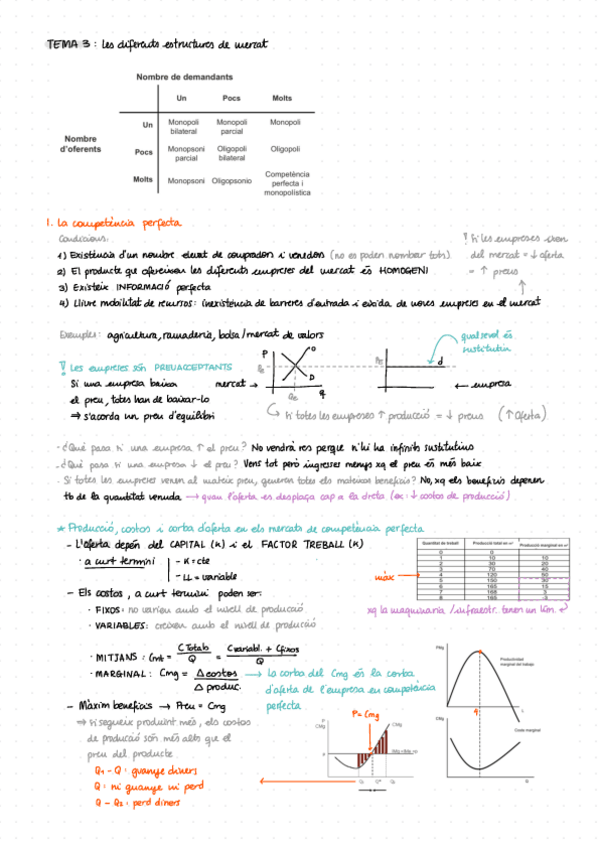 TEMA 3: les diferents estructures de mercat
Nombre de demandants
Un Pocs Molts
Nombre d'oferents
Un Monopoli bilateral Monopoli parcial Monopoli
Pocs Monopsoni parcial Oligopoli bilateral Oligopoli
Molts Monopsoni Oligopsonio Competència perfecta i monopolística
1. La competència perfecta
Condicions:
1) Existència d'un nombre elevat de compradors i venedors (no es poden nombrar tots)
2) El producte que ofereixen les diferents empreses del mercat és HOMOGENI
3) Existeix INFORMACIÓ perfecta
4) Lliure mobilitat de recursos: inexistència de barreres d'entrada i eixida de noves empreses en el mercat
! Si les empreses ixen
del mercat = ↓ oferta
= ↑ preus
Exemples: agricultura, ramaderia, bolsa/mercat de valors
! Les empreses són PREUACCEPTANTS
Si una empresa baixa
el preu, totes han de baixar-lo
⇒ s'acorda un preu d'equilibri
mercat →
P
O
D
q
d
qualsevol és
substitutiu
← empresa
Si totes les empreses ↑ producció = ↓ preus (↑ oferta)
- ¿Qué pasa si una empresa ↑ el preu? No vendrà res perque n'hi ha infinits substitutius
- ¿Qué pasa si una empresa ↓ el preu? Vens tot però ingreses menys xq el preu és més baix
- Si totes les empreses venen al mateix preu, generen totes els mateixos beneficis? No, xq els beneficis depenen
tb de la quantitat venuda → quan l'oferta es desplaça cap a la dreta (ex: ↓ costos de producció)
* Producció, costos i corba d'oferta en els mercats de competència perfecta
- L'oferta depén del CAPITAL (K) i el FACTOR TREBALL (K)
· a curt termini
- K = cte
- LL = variable
- Els costos, a curt termini poden ser:
· FIXOS: no varien amb el nivell de producció
· VARIABLES: creixen amb el nivell de producció
Quantitat de treball Producció total en m² Producció marginal en m²
0 0
1 10 10
2 30 20
3 70 40
4 120 50
5 150 30
6 165 15
7 168 3
8 165 -3
màx →
xq la maquinaria/infraestr. tenen un lím.
· MITJANS: Cmt = C Totals / Q = C variabl. + C fixos / Q
· MARGINAL: Cmg = Δ costos / Δ produc. → La corba del Cmg és la corba
d'oferta de l'empresa en competència
perfecta
- Màxim beneficis → Preu = Cmg
⇒ Si segueix produint més, els costos
de producció són més alts que el
preu del producte.
Q₁ - Q: guanye diners
Q: ni guanye ni perd
Q - Q₂: perd diners
P = Cmg
P
CMg
CMg
Q
PMg
Productivitat marginal del treball
L
CMg
Costs marginal